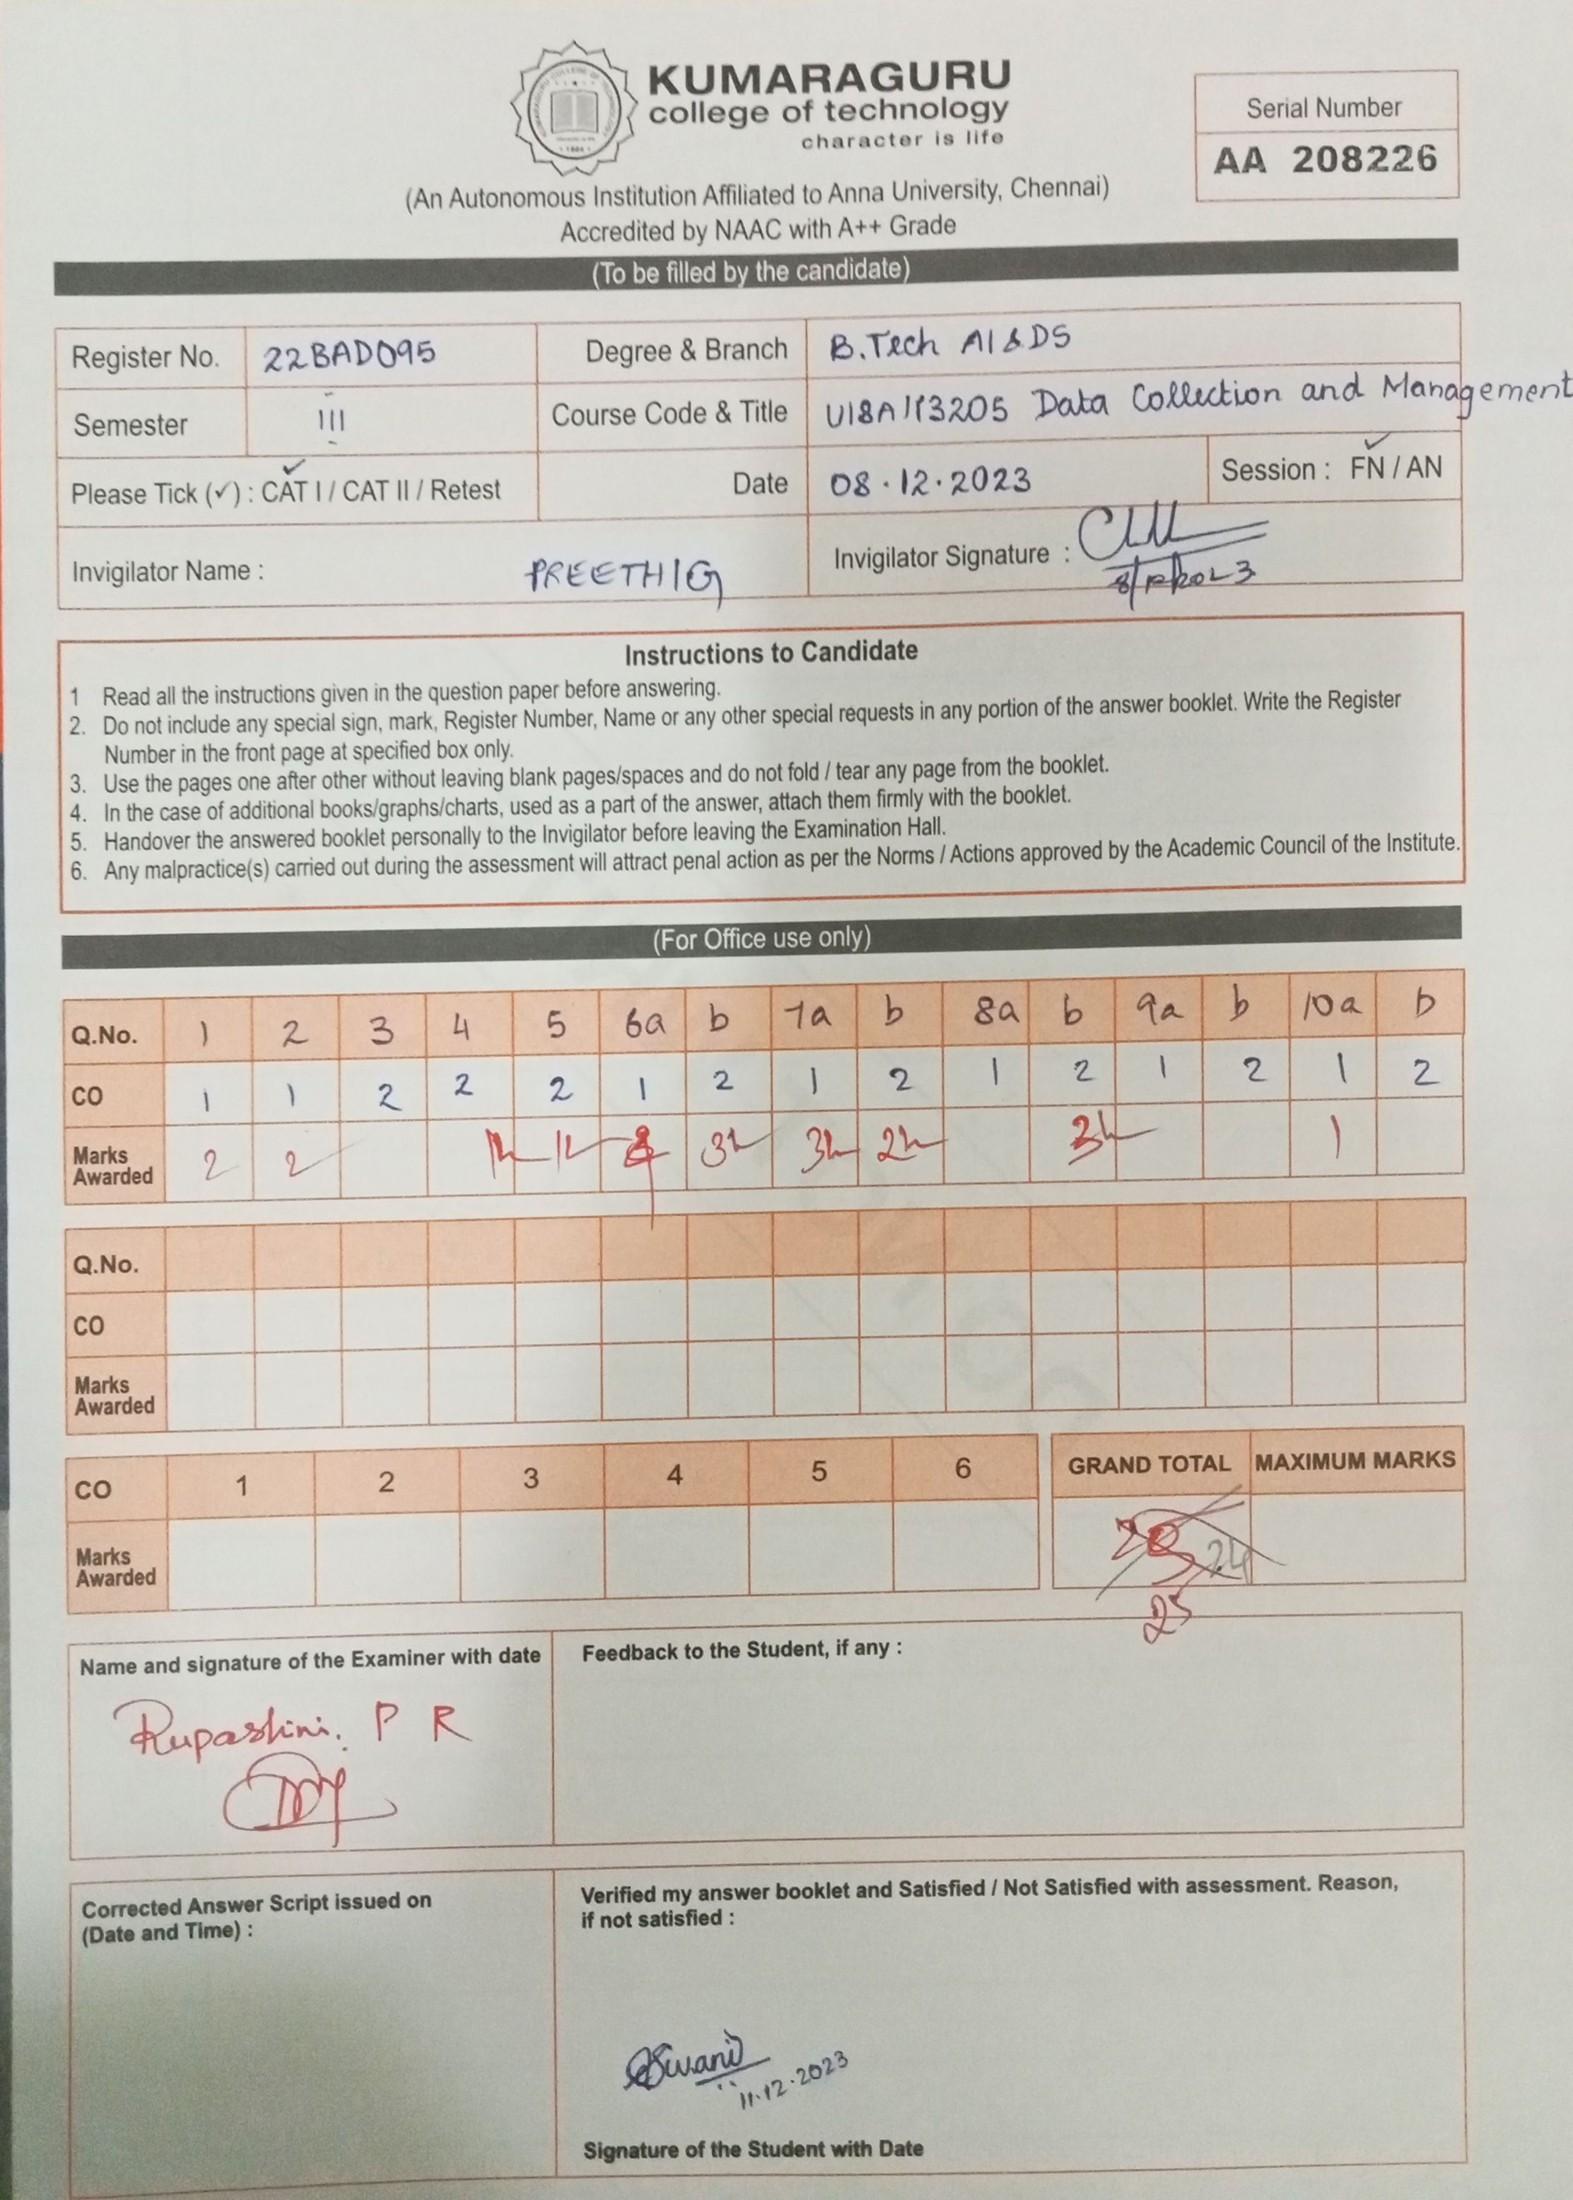 KUMARAGURU
college of technology
character is life
Serial Number
AA 208226
(An Autonomous Institution Affiliated to Anna University, Chennai)
Accredited by NAAC with A++ Grade
(To be filled by the candidate)
Register No. 22BAD095 Degree & Branch B.Tech AI & DS
Semester III Course Code & Title U18AII3205 Data Collection and Management
Please Tick (✓) : CAT I / CAT II / Retest Date 08.12.2023 Session : FN / AN
Invigilator Name : PREETHI G Invigilator Signature :
Instructions to Candidate
1 Read all the instructions given in the question paper before answering.
2. Do not include any special sign, mark, Register Number, Name or any other special requests in any portion of the answer booklet. Write the Register
Number in the front page at specified box only.
3. Use the pages one after other without leaving blank pages/spaces and do not fold / tear any page from the booklet.
4. In the case of additional books/graphs/charts, used as a part of the answer, attach them firmly with the booklet.
5. Handover the answered booklet personally to the Invigilator before leaving the Examination Hall.
6. Any malpractice(s) carried out during the assessment will attract penal action as per the Norms / Actions approved by the Academic Council of the Institute.
(For Office use only)
Q.No. 1 2 3 4 5 6a b 7a b 8a b 9a b 10a b
CO 1 1 2 2 2 1 2 1 2 1 2 1 2 1 2
Marks Awarded 2 2 1
Q.No.
CO
Marks Awarded
CO 1 2 3 4 5 6 GRAND TOTAL MAXIMUM MARKS
Marks Awarded 24
25
Name and signature of the Examiner with date
Rupashini. P R
Feedback to the Student, if any :
Corrected Answer Script issued on
(Date and Time) :
Verified my answer booklet and Satisfied / Not Satisfied with assessment. Reason,
if not satisfied :
11.12.2023
Signature of the Student with Date